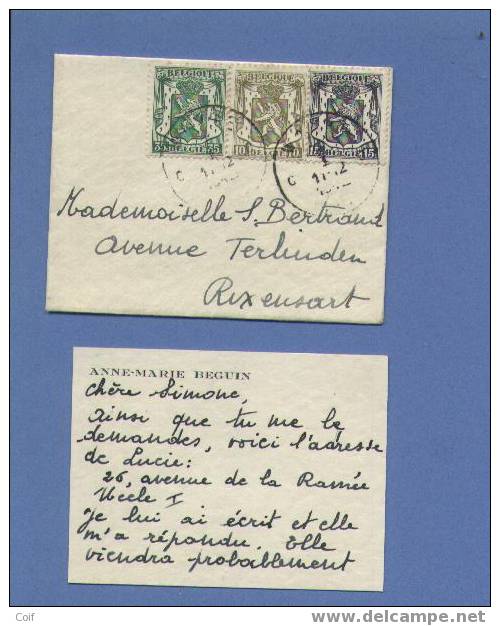 BELGIQUE BELGIQUE BELGIQUE
35 35 10 10 15
BELGIE BELGIE BELGIE
Mademoiselle S. Bertrand
Avenue Terlinden
Rixensart
ANNE-MARIE BEGUIN
Chère Simone,
Ainsi que tu me le
demandes, voici l'adresse
de Lucie:
26, avenue de la Ramée
Uccle I
Je lui ai écrit et elle
m'a répondu. Elle
viendra probablement
Coif
www.delcampe.net